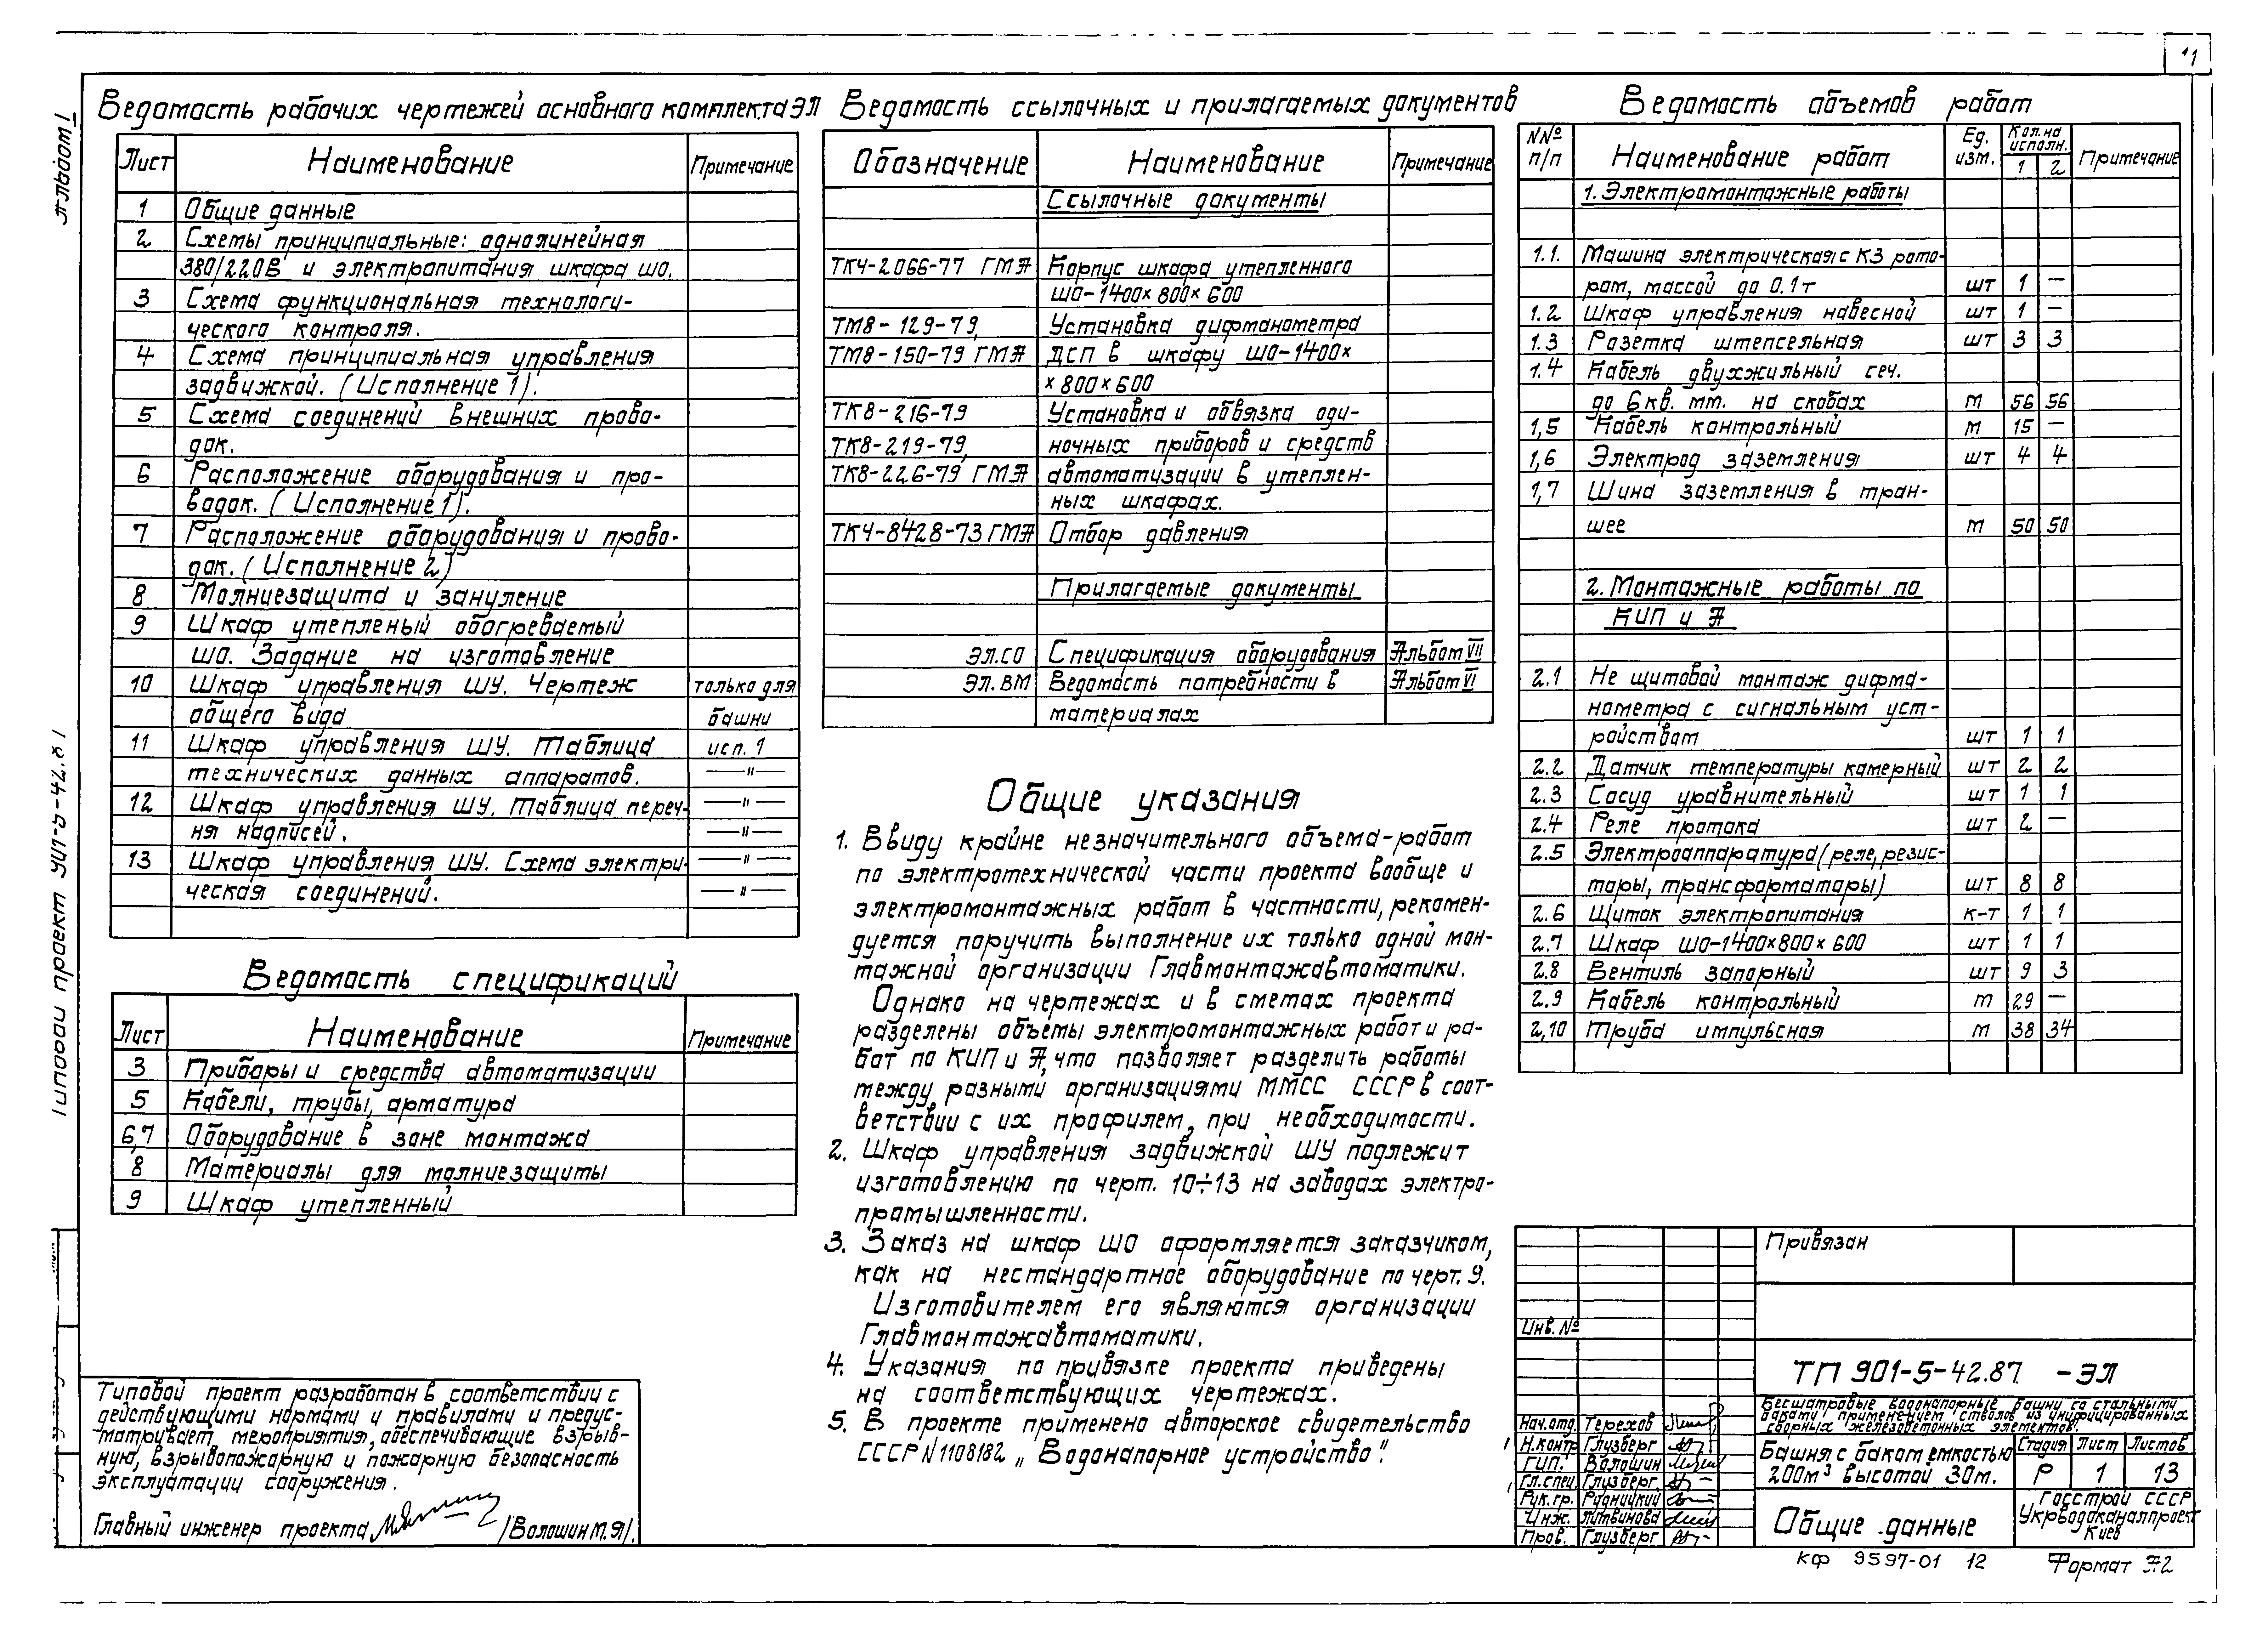 11
Альбом I
Ведомость рабочих чертежей основного комплекта ЭЛ
Лист Наименование Примечание
1 Общие данные
2 Схемы принципиальные: однолинейная
380/220В и электропитания шкафа шо.
3 Схема функциональная технологи-
ческого контроля.
4 Схема принципиальная управления
задвижкой. (Исполнение 1).
5 Схема соединений внешних прово-
док.
6 Расположение оборудования и про-
водок. (Исполнение 1).
7 Расположение оборудования и прово-
док. (Исполнение 2)
8 Молниезащита и зануление
9 Шкаф утепленый обогреваемый
шо. Задание на изготовление
10 Шкаф управления ШУ. Чертеж только для
общего вида башни
11 Шкаф управления ШУ. Таблица исп. 1
технических данных аппаратов. —"—
12 Шкаф управления ШУ. Таблица переч- —"—
ня надписей. —"—
13 Шкаф управления ШУ. Схема электри- —"—
ческая соединений. —"—
Ведомость спецификаций
Лист Наименование Примечание
3 Приборы и средства автоматизации
5 Кабели, трубы, арматура
6,7 Оборудование в зоне монтажа
8 Материалы для молниезащиты
9 Шкаф утепленный
Типовой проект разработан в соответствии с
действующими нормами и правилами и предус-
матривает мероприятия, обеспечивающие взрыв-
ную, взрывопожарную и пожарную безопасность
эксплуатации сооружения.
Главный инженер проекта /Волошин М.Я/.
Ведомость ссылочных и прилагаемых документов
Обозначение Наименование Примечание
Ссылочные документы
ТК4-2066-77 ГМА Корпус шкафа утепленного
ШО-1400×800×600
ТМ8-129-79, Установка дифманометра
ТМ8-150-79 ГМА ДСП в шкафу ШО-1400×
×800×600
ТК8-216-79 Установка и обвязка оди-
ТК8-219-79, ночных приборов и средств
ТК8-226-79 ГМА автоматизации в утеплен-
ных шкафах.
ТК4-8428-73 ГМА Отбор давления
Прилагаемые документы
ЭЛ.СО Спецификация оборудования Альбом VII
ЭЛ.ВМ Ведомость потребности в Альбом VI
материалах
Общие указания
1. Ввиду крайне незначительного объема-работ
по электротехнической части проекта вообще и
электромонтажных работ в частности, рекомен-
дуется поручить выполнение их только одной мон-
тажной организации Главмонтажавтоматики.
Однако на чертежах и в сметах проекта
разделены объемы электромонтажных работ и ра-
бот по КИП и А, что позволяет разделить работы
между разными организациями ММСС СССР в соот-
ветствии с их профилем, при необходимости.
2. Шкаф управления задвижкой ШУ подлежит
изготовлению по черт. 10÷13 на заводах электро-
промышленности.
3. Заказ на шкаф ШО оформляется заказчиком,
как на нестандартное оборудование по черт. 9.
Изготовителем его являются организации
Главмонтажавтоматики.
4. Указания по привязке проекта приведены
на соответствующих чертежах.
5. В проекте применено авторское свидетельство
СССР N 1108182 „Водонапорное устройство".
Ведомость объемов работ
NNº п/п Наименование работ Ед. изм. Кол. на исполн. 1 2 Примечание
1. Электромонтажные работы
1.1. Машина электрическая с КЗ рото-
ром, массой до 0.1т шт 1 —
1.2 Шкаф управления навесной шт 1 —
1.3 Розетка штепсельная шт 3 3
1.4 Кабель двухжильный сеч.
до 6 кв. мм. на скобах м 56 56
1,5 Кабель контрольный м 15 —
1,6 Электрод заземления шт 4 4
1,7 Шина заземления в тран-
шее м 50 50
2. Монтажные работы по
КИП и А
2.1 Не щитовой монтаж дифма-
нометра с сигнальным уст-
ройством шт 1 1
2.2 Датчик температуры камерный шт 2 2
2.3 Сосуд уравнительный шт 1 1
2.4 Реле протока шт 2 —
2.5 Электроаппаратура (реле, резис-
торы, трансформаторы) шт 8 8
2.6 Щиток электропитания к-т 1 1
2.7 Шкаф ШО-1400×800×600 шт 1 1
2.8 Вентиль запорный шт 9 3
2.9 Кабель контрольный м 29 —
2,10 Труба импульсная м 38 34
Привязан
Инв. Nº
ТП 901-5-42.87. -ЭЛ
Бесшатровые водонапорные башни со стальными
баками с применением стволов из унифицированных
сборных железобетонных элементов.
Нач.отд. Терехов
Н.контр Глузберг
ГИП. Волошин
Гл.спец. Глузберг
Рук.гр. Рудницкий
Инж. Литвинова
Пров. Глузберг
Башня с баком емкостью
200м³ высотой 30м.
Стадия Лист Листов
Р 1 13
Общие данные
Госстрой СССР
Укрводоканалпроект
Киев
КФ 9597-01 12
Формат А2